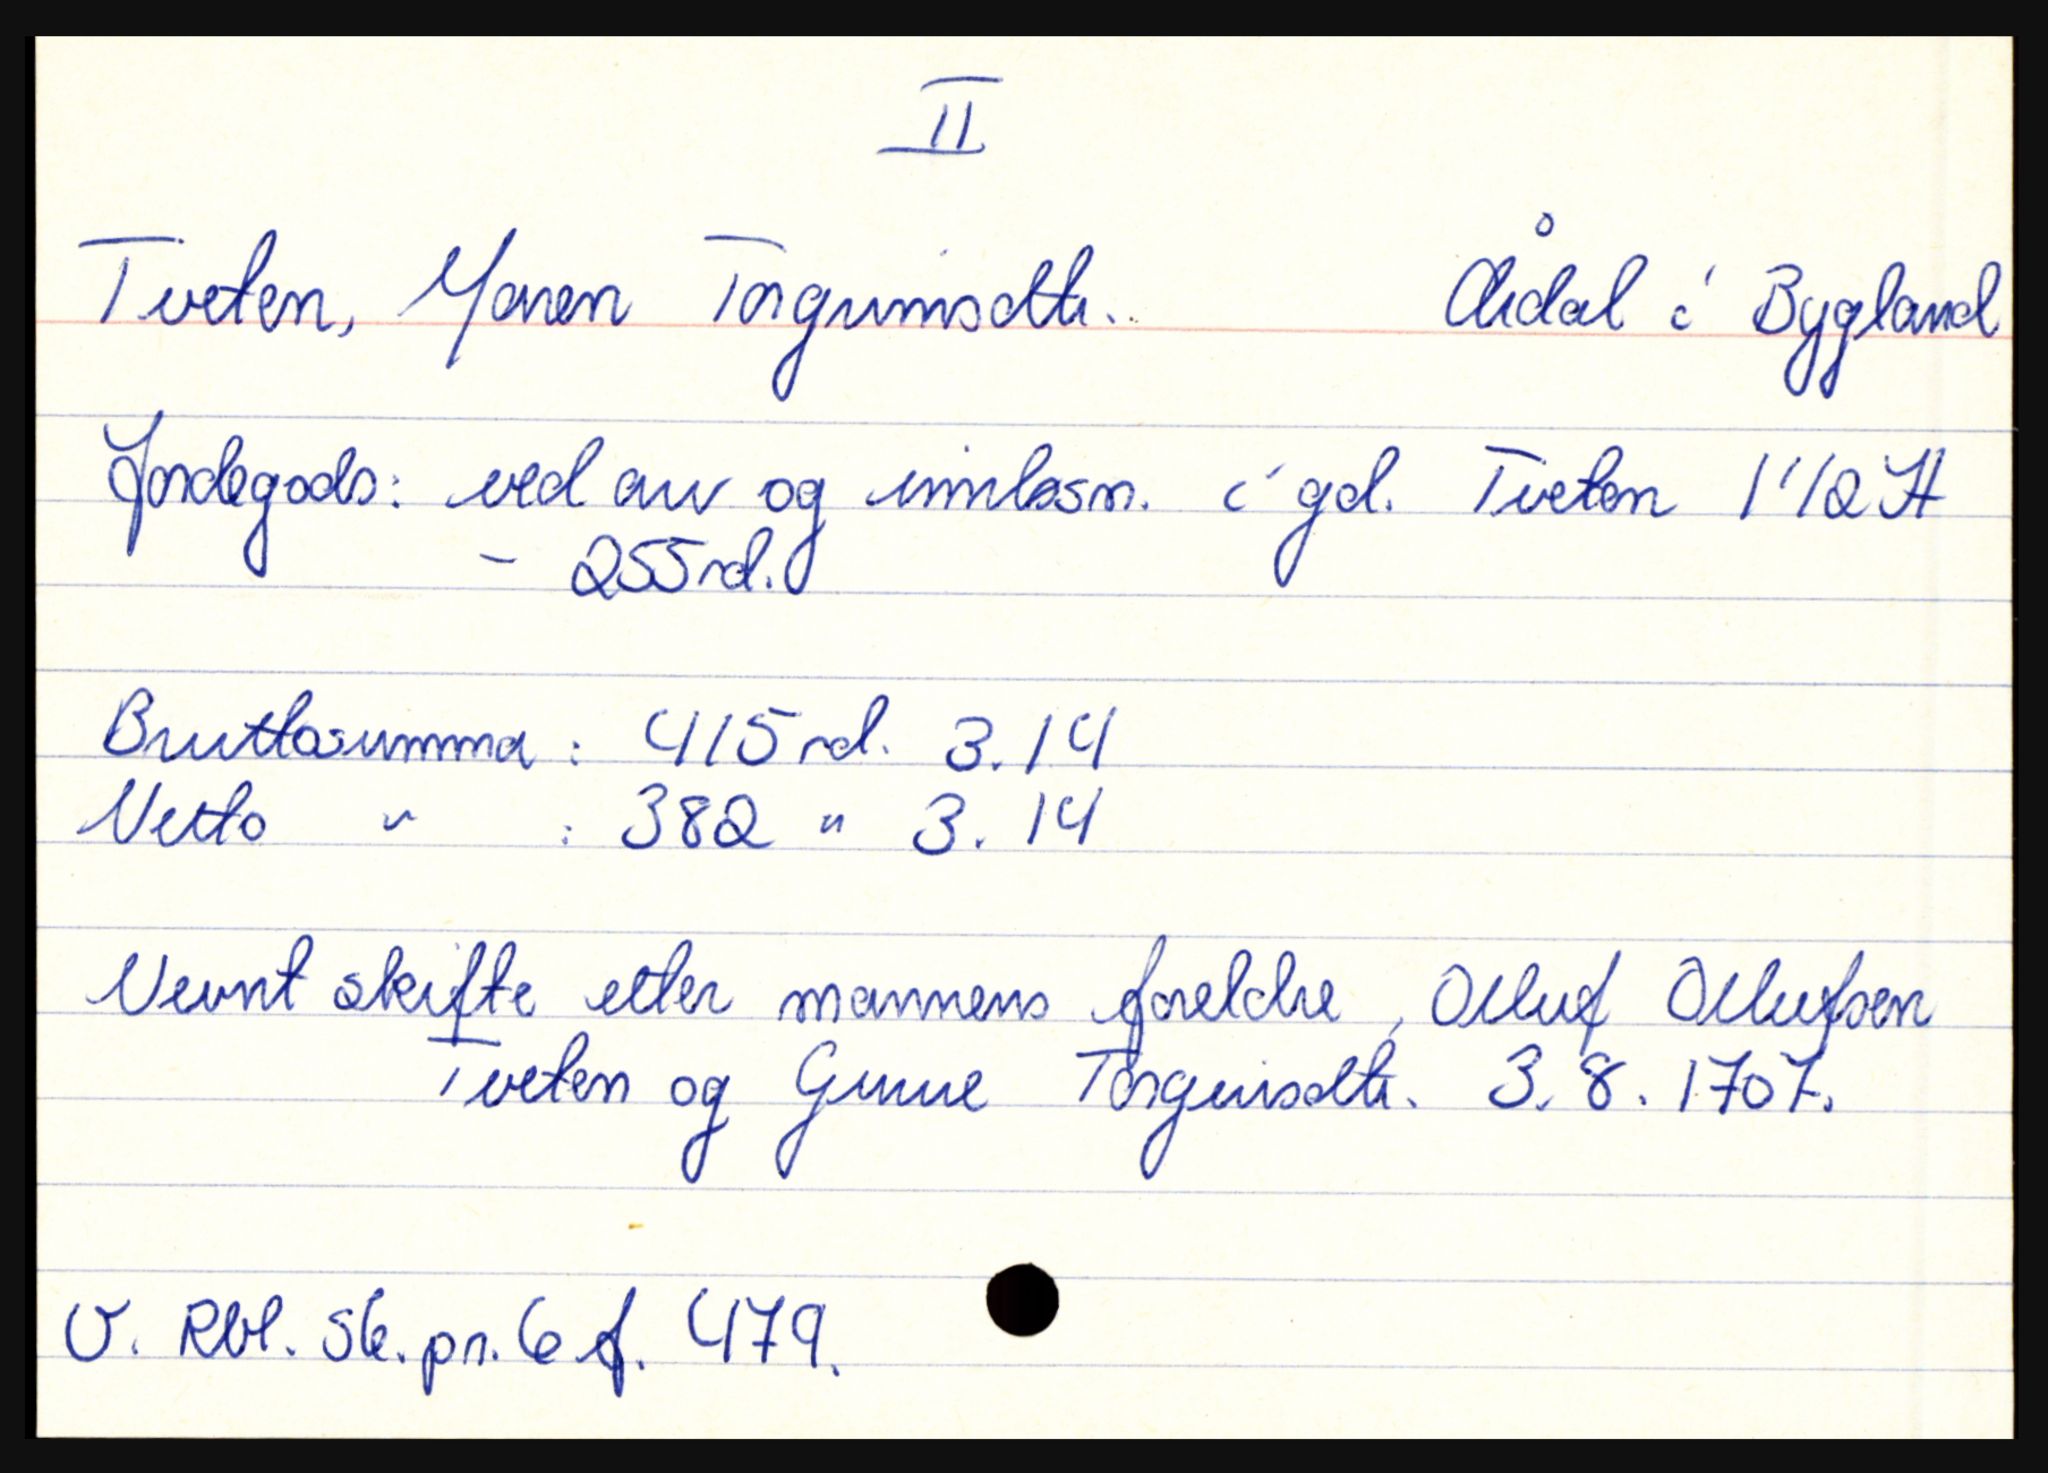 II
Tveten, Maren Torgrimsdtr. Årdal i Bygland
Jordegods: ved arv og innløsn. i gd. Tveten 1 1/2 H
- 255 rd.
Bruttosumma: 415 rd. 3.14
Netto " : 382 " 3.14
Nevnt skifte etter mannens foreldre, Olluf Ollufsen
Tveten og Gunne Torgrisdtr. 3.8.1707.
V. Rbl. Sk. pr. 6 f. 479.